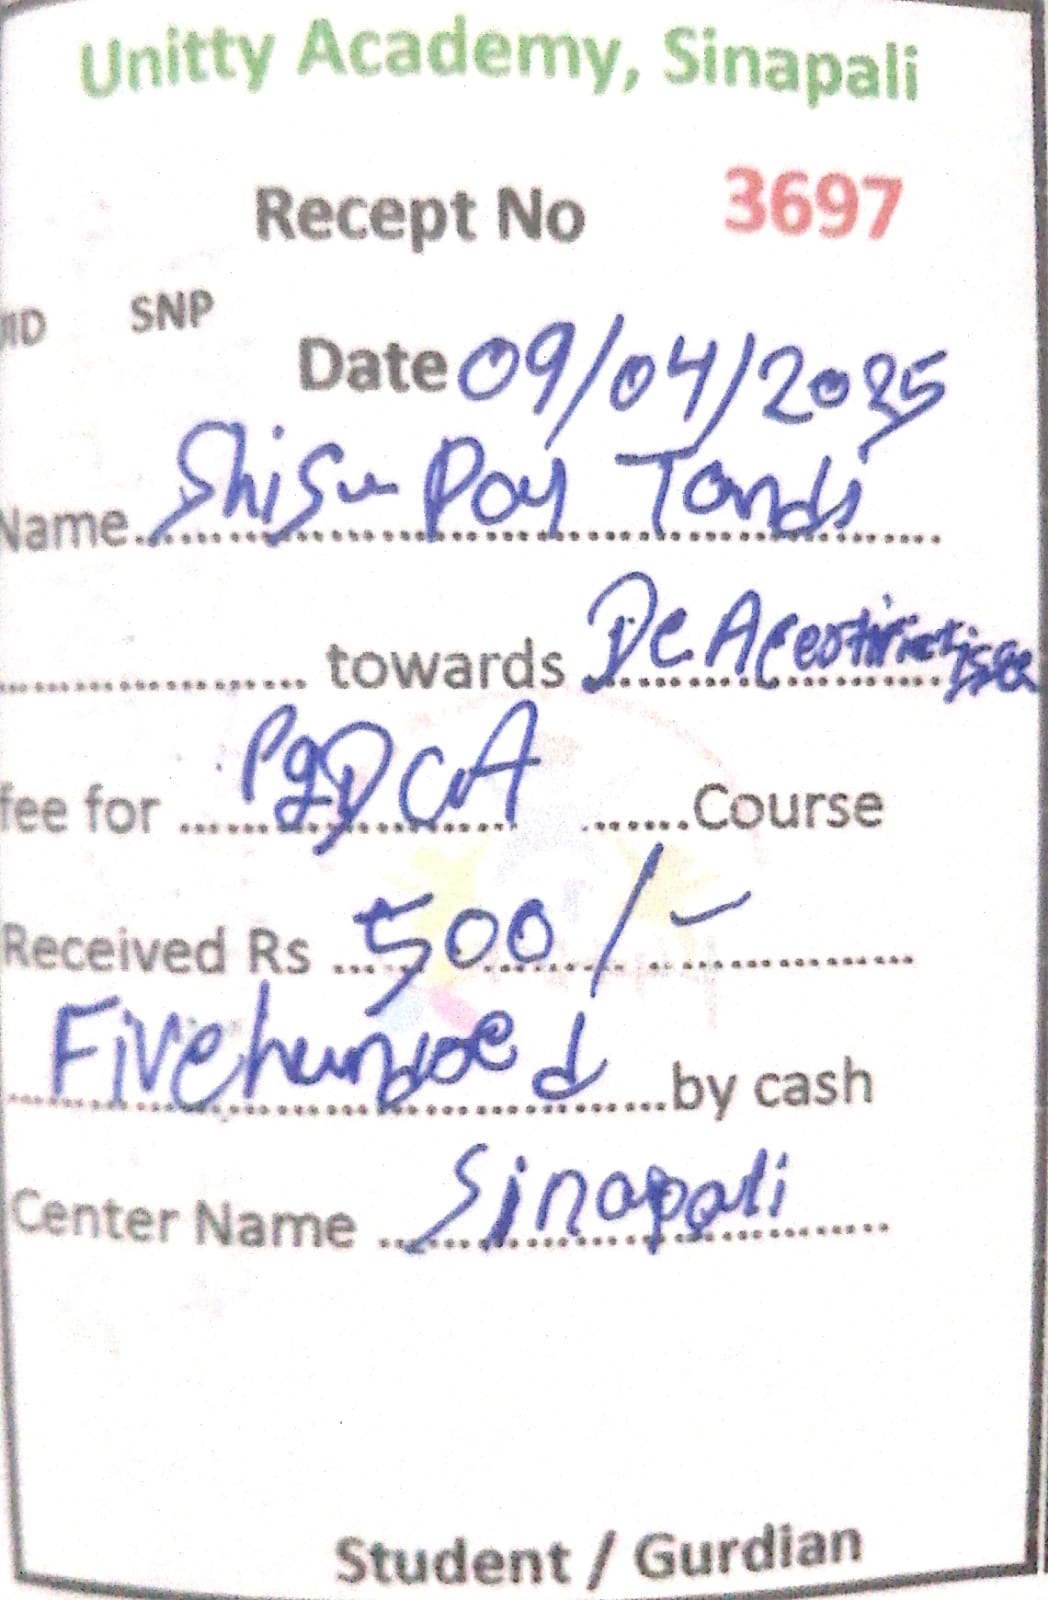 Unitty Academy, Sinapali
Recept No 3697
SNP
Date 09/04/2025
Name Shisu Pay Tandi
towards DCA
fee for PgDCA Course
Received Rs 500/-
Five hundred by cash
Center Name Sinapali
Student / Gurdian